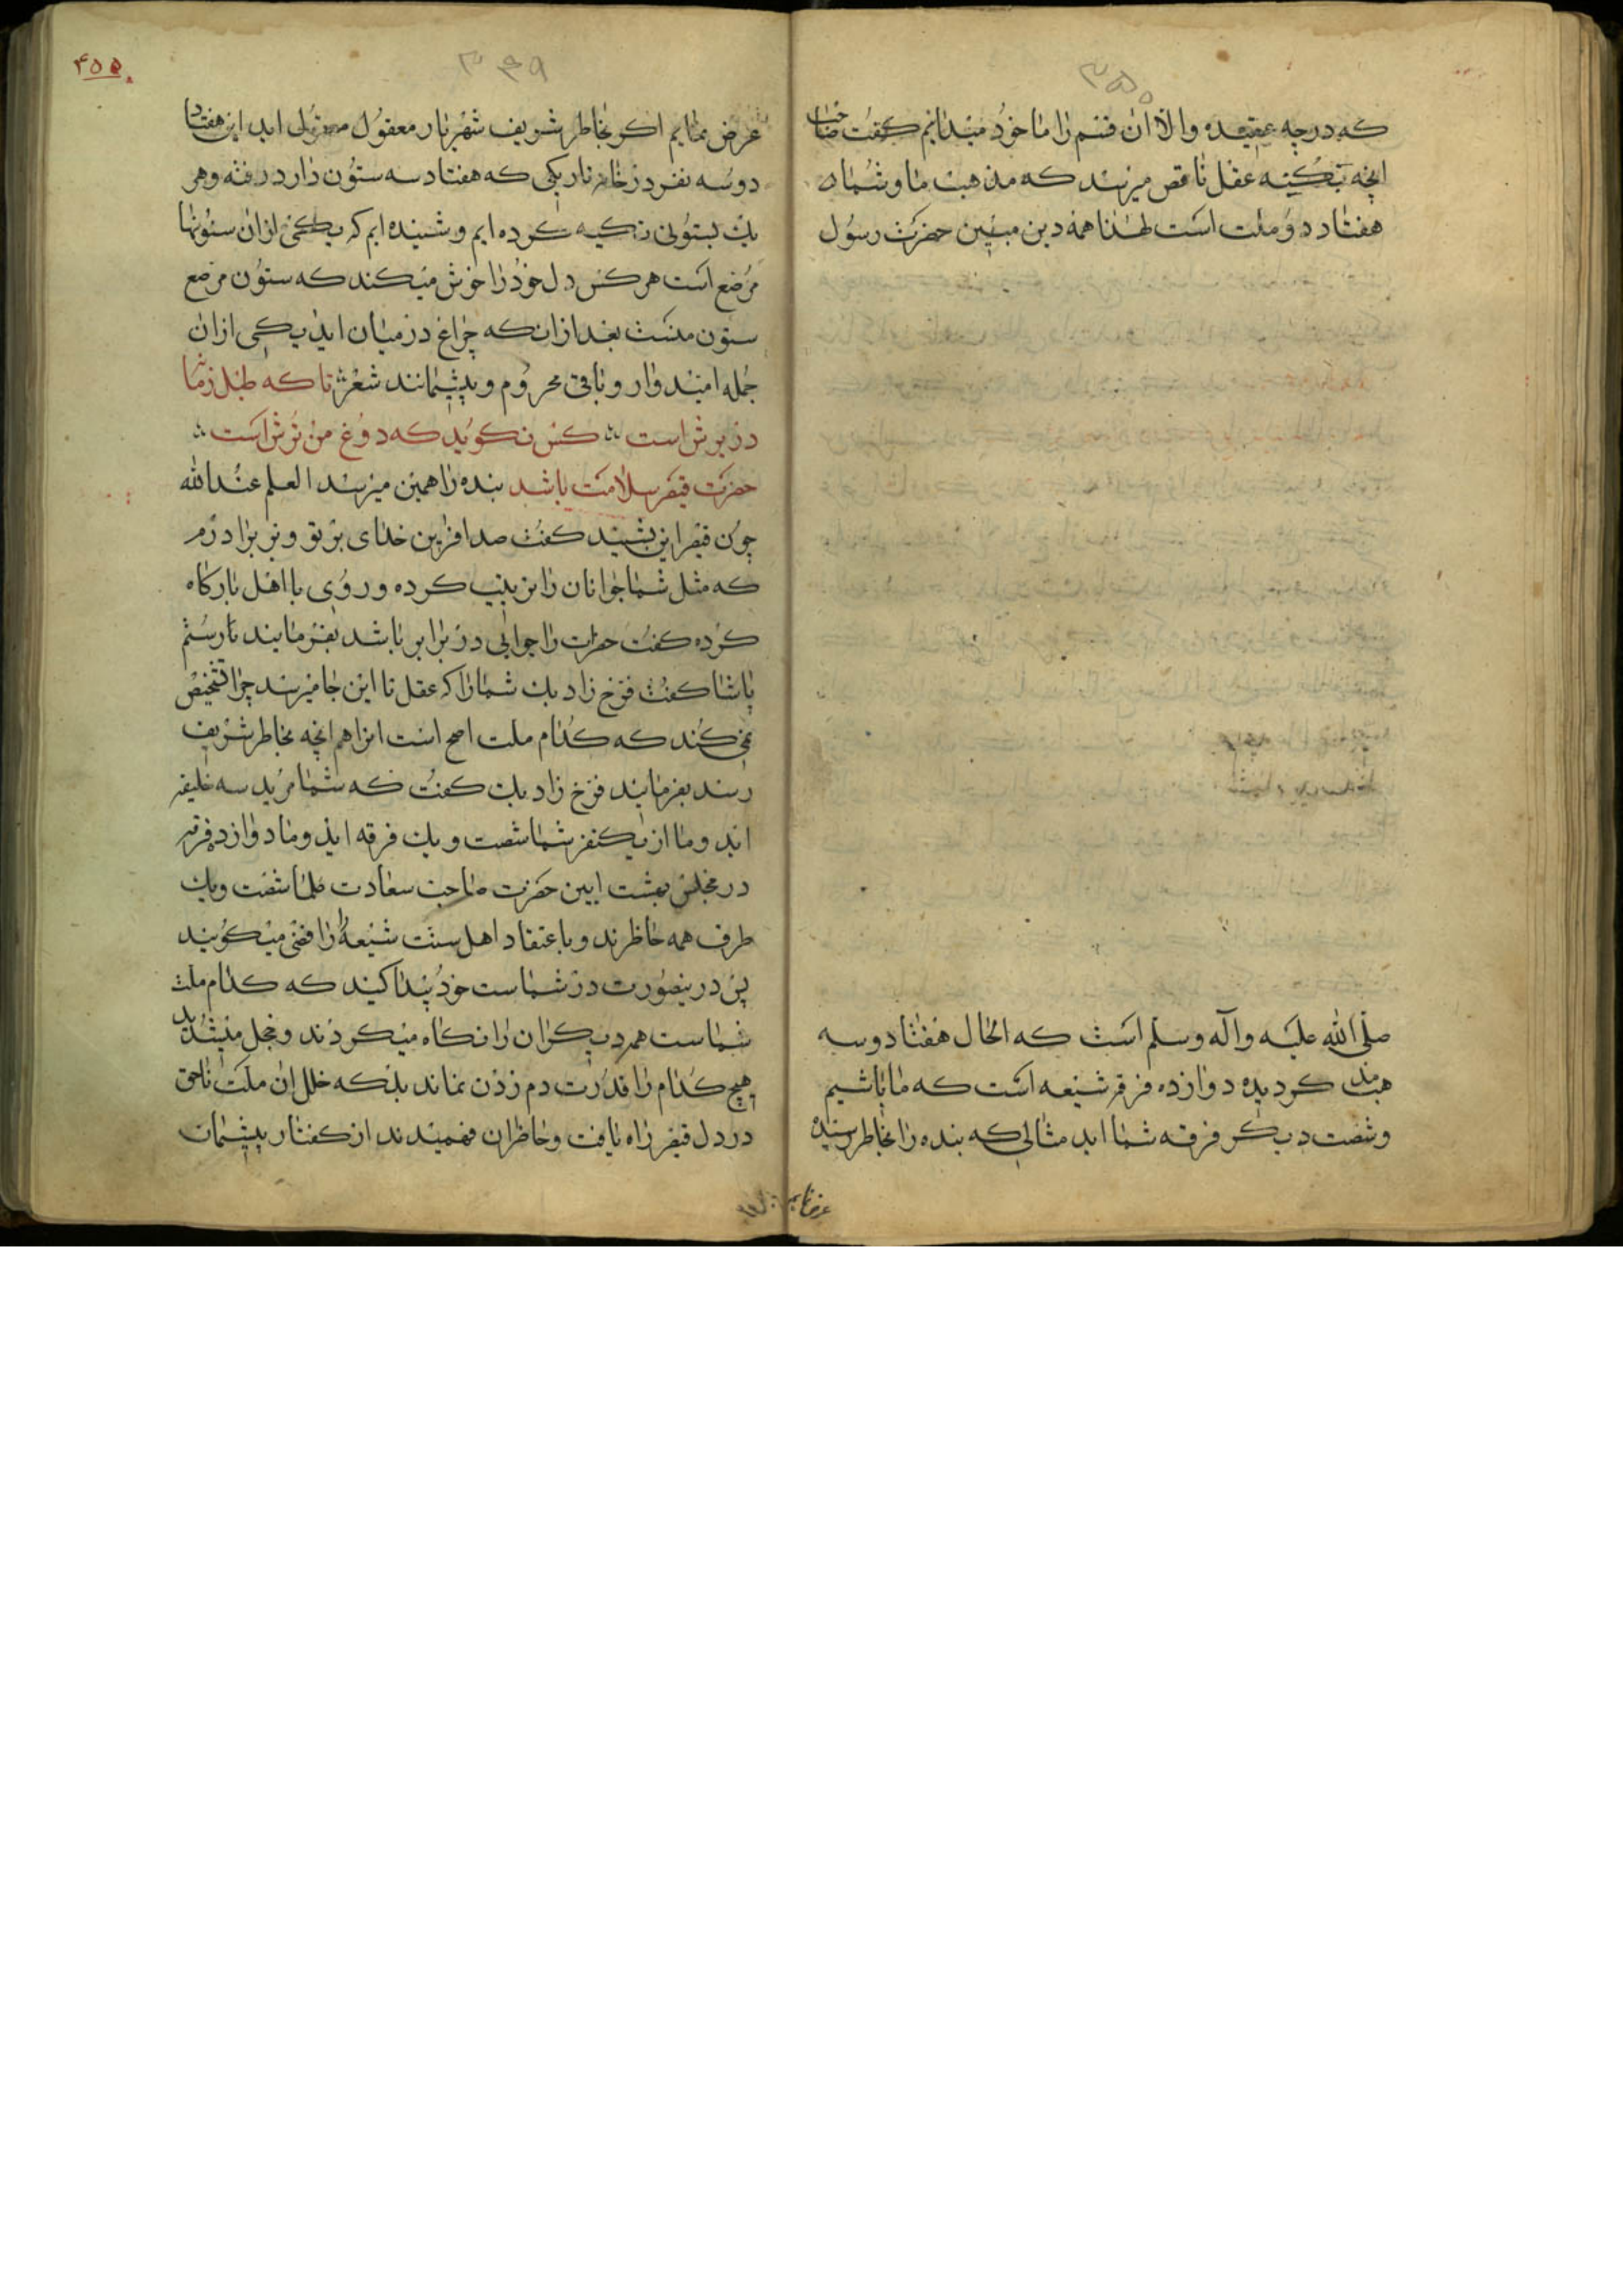 ۳۵۰
که درچه عقیده والا ان قسم را ما خود میدانیم کفت صاحب
انچه بکنه عقل ناقص میرسد که مذهب ما و شما
هفتاد دو ملت است لهذا همه دین مبین حضرت رسول
صلی الله علیه واله وسلم است که الحال هفتاد وسه
مذهب کردیده دوازده فرقه شیعه است که ما باشیم
وشصت دیکر فرقه شما اید مثالی که بنده را بخاطر رسیده
عرض نمایم
۳۴۹
۴۵۵
عرض نمایم اکر بخاطر شریف شهریار معقول اید این هفتاد
دوسه نفر در خانه تاریکی که هفتاد سه ستون دارد رفته وهر
یک بستونی تکیه کرده ایم وشنیده ایم که یکی ازان ستونها
مرصع است هر کس دل خود را خوش میکند که ستون مرصع
ستون منست بعد ازان که چراغ در میان اید یکی ازان
جمله امیدوار وباقی محروم وپشیمانند شعر تا که طبل زمانه
در برش است کس نکوید که دوغ من ترش است
حضرت قیصر سلامت باشد بنده را همین میرسد العلم عند الله
چون قیصر این بشنید کفت صد افرین خدای بر تو وبر برادرم
که مثل شما جوانان را تربیت کرده وروی با اهل بارکاه
کرده کفت حضرات را جوابی در برابر باشد بفرمایند تا رستم
پاشا کفت فرخ زاد بک شما را که عقل تا این جا میرسد چرا تشخیص
نمی کند که کدام ملت اصح است انرا هم انچه بخاطر شریف
رسد بفرمایند فرخ زاد بک کفت که شما مرید سه خلیفه
اید وما از یکنفر شما شصت ویک فرقه اید وما دوازده فرقه
در مجلس بهشت ایین حضرت صاحب سعادت علما شصت ویک
طرف همه حاظرند وباعتقاد اهل سنت شیعه را رافضی میکویند
پس درینصورت در شماست خود پیدا کنید که کدام ملت
شماست همه دیکران را نکاه میکردند وخجل میشدند
هیچ کدام را قدرت دم زدن نماند بلکه خلل ان ملت ناحق
در دل قیصر راه یافت وحاظران فهمیدند از کفتار پشیمان